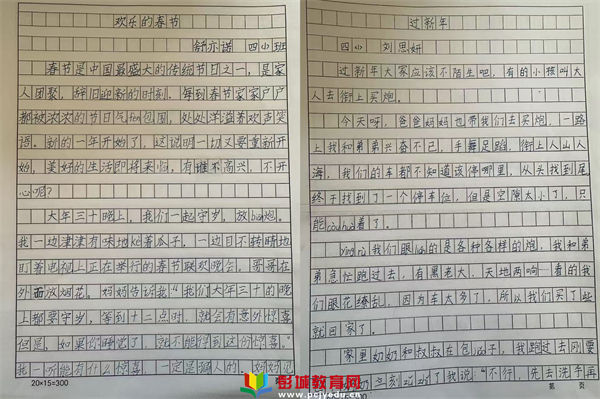 欢乐的春节
舒亦诺 四小班
春节是中国最盛大的传统节日之一，是家
人团聚，辞旧迎新的时刻。每到春节家家户户
都被浓浓的节日气fēn包围，处处洋溢着欢声笑
语。新的一年开始了，这说明一切又要重新开
始，美好的生活即将来临，有谁不高兴，不开
心呢？
大年三十晚上，我们一起守岁，放biān炮。
我一边津津有味地kè着瓜子，一边目不转睛地
盯着电视上正在举行的春节联欢晚会。哥哥在
外面放烟花。妈妈告诉我“我们大年三十的晚
上都要守岁，等到十二点时，就会有意外惊喜
但是，如果你睡觉了，就不能得到这份惊喜。”
我一听能有什么惊喜，一定是骗人的，妈妈说
20×15=300
过新年
四小 刘思妍
过新年大家应该不陌生吧，有的小孩叫大
人去街上买炮。
今天呀，爸爸妈妈也带我们去买炮，一路
上我和弟弟兴奋不已，手舞足蹈，街上人山人
海，我们的车都不知道该停哪里，从头找到尾
终于找到了一个停车位，但是空隙太小了，只
能còu huo着了。
yìng rù我们眼lián的是各种各样的炮，我和弟
弟急忙跑过去，有黑老大、天地两响，看的我
们眼花缭乱，因为车太多了，所以我们买了些
就回家了。
家里奶奶和叔叔在包jiǎo子，我跑过去刚要
了我说“不行，先去洗手再
第 页
彭城教育网
www.pcjyedu.cn